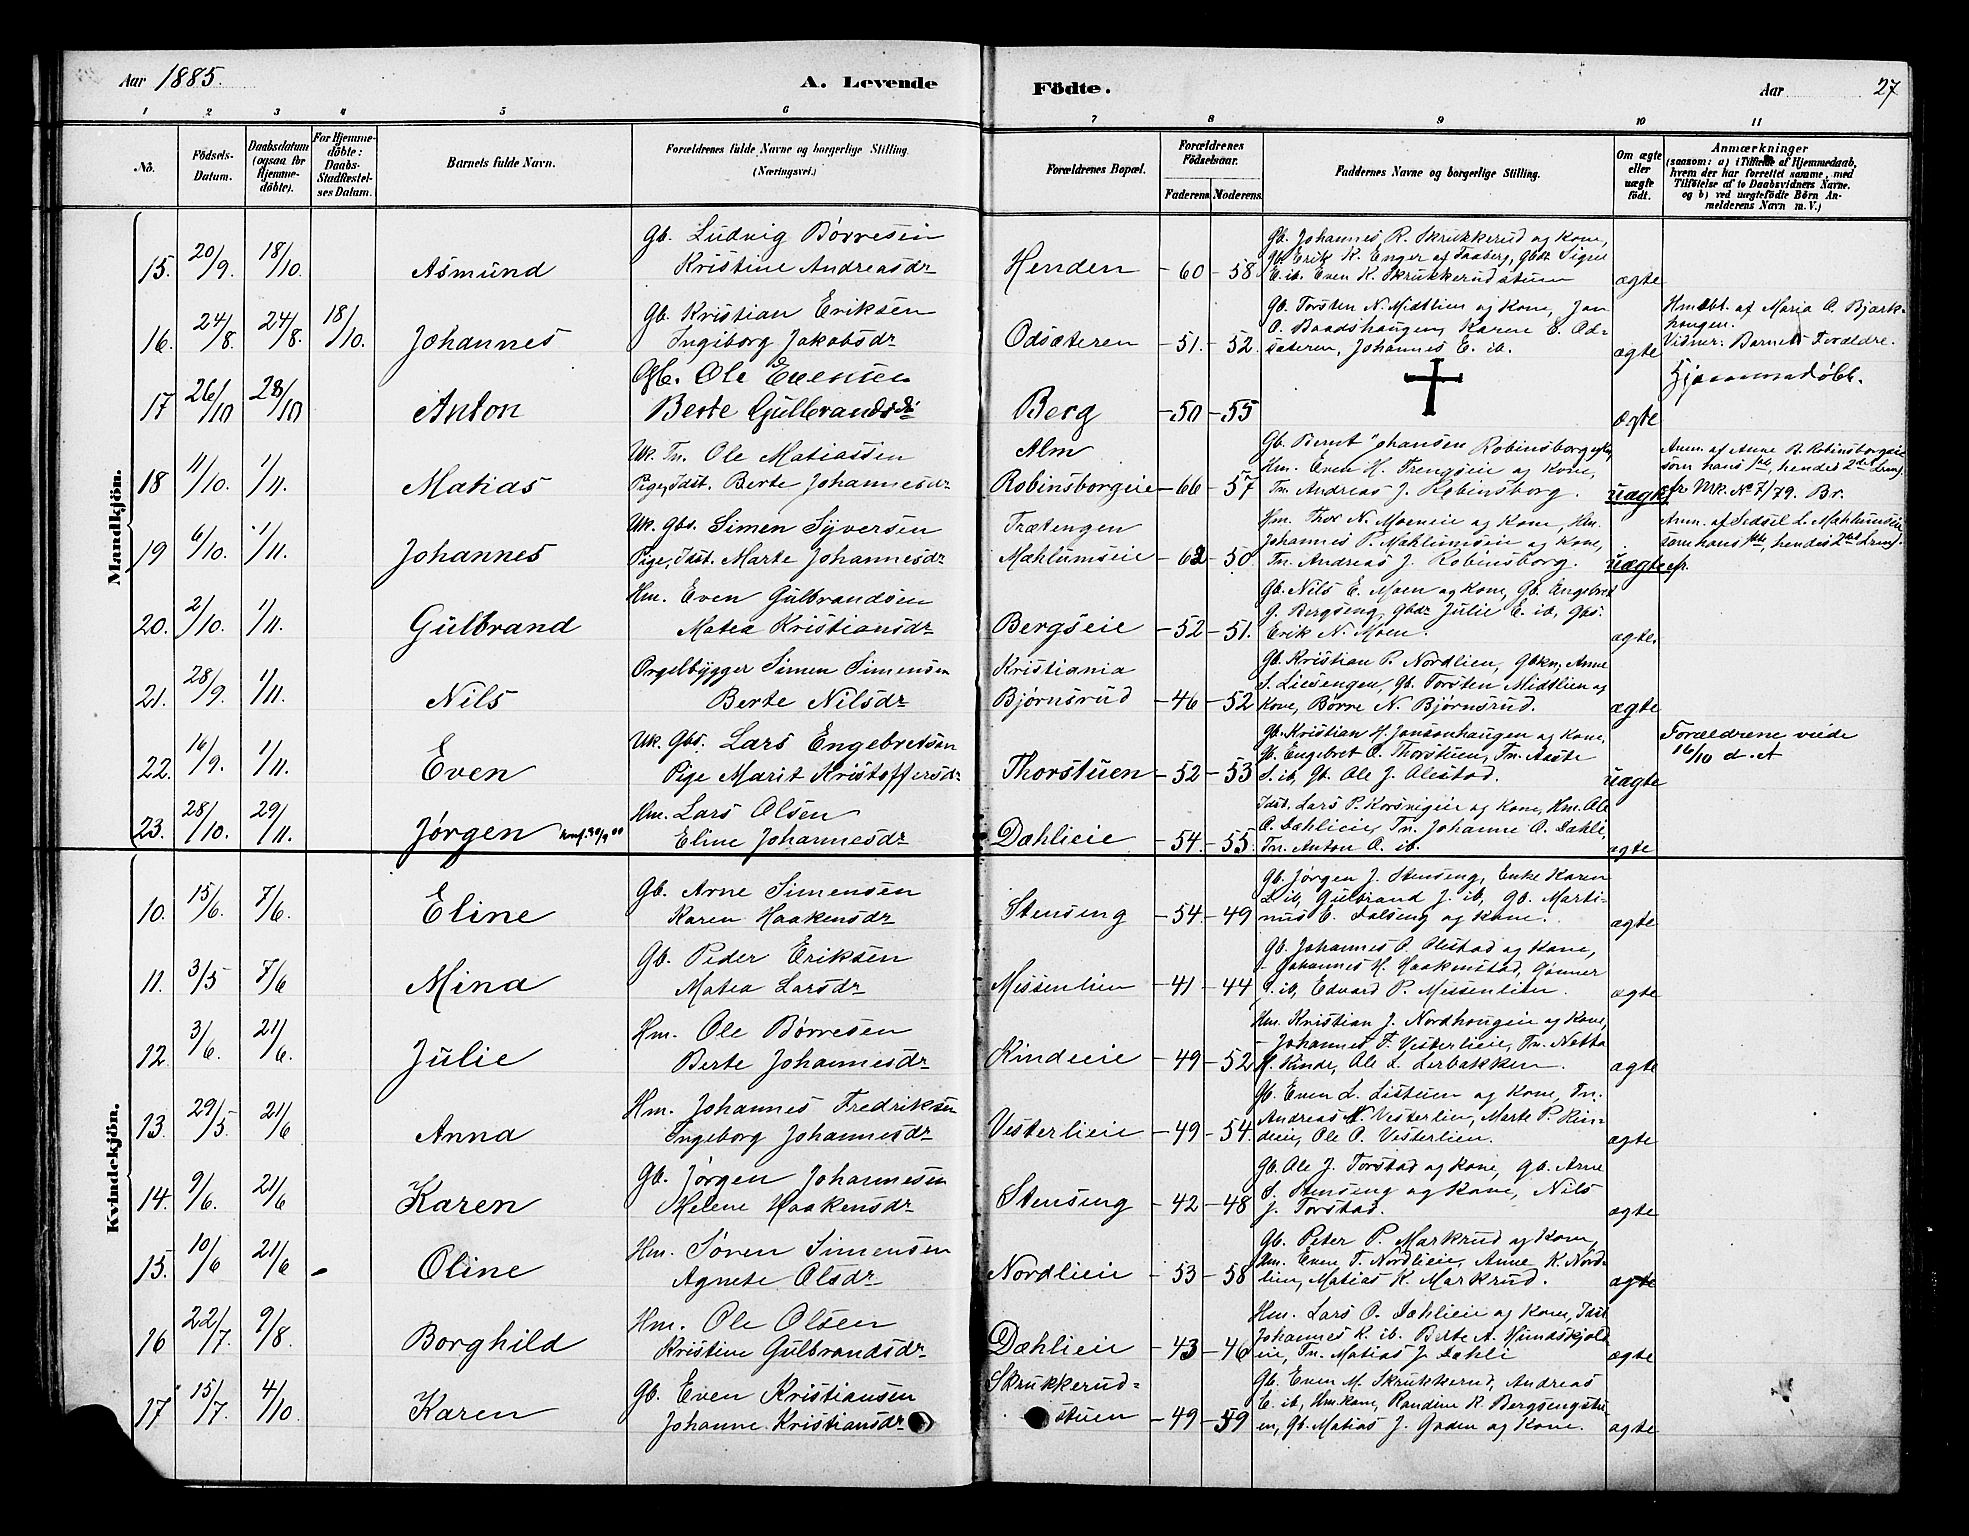 Aar 1885. A. Levende Födte. Aar 27
1 2 3 4 5 6 7 8 9 10 11
No.
Födsels-Datum.
Daabsdatum (ogsaa for Hjemme-döbte).
For Hjemme-döbte: Daabs-Stadfæstel-ses Datum.
Barnets fulde Navn.
Forældrenes fulde Navne og borgerlige Stilling. (Næringsvei.)
Forældrenes Bopæl.
Forældrenes Födselsaar.
Faderens Moderens
Faddernes Navne og borgerlige Stilling.
Om ægte eller uægte födt.
Anmærkninger
(saasom: a) i Tilfælde af Hjemmedaab,
hvem der har forrettet samme, med
Tilföielse af to Daabsvidners Navne.
og b) ved uægtefödte Börn An-
melderens Navn m. V.)
Mandkjön.
15. 20/9. 18/10. Asmund
Gb. Ludvig Børresen
Kristine Andreasdr
Henden -60 -58
Gb. Johannes R. Skrukkerud og Kone,
Gb. Erik K. Enger af Faaberg, Gbdr Signe
E. ib. Even K. Skrukkerudstuen
ægte
16. 24/8. 24/8. 18/10. Johannes
Gb. Kristian Eriksen
Ingiborg Jakobsdr
Odsæteren -51. -52.
Gb. Torsten N. Midtlien og Kone, Jan
O. Baadshaugen, Karen E. Od-
sæteren, Johannes E. ib.
ægte
Hmdbt. af Maria O. Bjørk-
haugen.
Vidner: Barnets Forældre.
17 26/10 28/10 Anton
Gb. Ole Evensen
Berte Gulbrandsdr
Berg -50 -55
ægte
Hjemmedøbt.
18 11/10. 1/11. Matias
Uk. Tn. Ole Matiassen
Pige, Idst. Berte Johannesdr
Alm
Robinsborgeie -66 -57
Gb. Bernt Johansen Robinsborg
Hm. Even H. Trengseie og Kone,
Tn. Andreas J. Robinsborg.
uægte
Anm. af Anne B. Robinsborgeie
som hans 1ste, hendes 2det Leierm.
fr Mk. No 7/79. Br.
19 6/10. 1/11. Johannes
Uk. Gbs. Simen Syversen
Pige, Idst. Marte Johannesdr
Trætengen
Mæhlumseie -62 -50
Hm. Thor N. Moeneie og Kone, Hm.
Johannes P. Mæhlumseie og Kone,
Tn. Andreas J. Robinsborg.
uægte
Anm. af Sedsel L. Mæhlumseie
som hans 1ste, hendes 2det Leierm.
fr.
20. 2/10. 1/11. Gulbrand
Hm. Even Gulbrandsen
Matea Kristiansdr
Bergseie -52 -51.
Gb. Nils E. Moen og Kone, Gb. Engebret
G. Bergseng, Gbdr Julie E. ib, Gbs.
Erik N. Moen.
ægte.
21. 28/9. 1/11. Nils
Orgelbygger Simen Simensen
Berte Nilsdr
Kristiania
Bjørnsrud -46 -52
Gb. Kristian P. Nordlien, Gbkn. Anne
S. Liesengen, Gb. Torsten Midtlien og
Kone, Børre N. Bjørnsrud.
ægte
22. 16/9. 1/11. Even
Uk. Gbs. Lars Engebretsen
Pige Marit Kristoffersdr
Thorstuen -52 -53
Gb. Kristian H. Jonsonhaugen og Kone,
Gb. Engebret O. Thorstuen, Tn. Aaste
S. ib, Gb. Ole J. Olestad.
uægte
Forældrene viede
16/10 d. A
23. 28/10. 29/11. Jørgen Konf. 30/9 00
Hm. Lars Olsen
Eline Johannesdr
Dæhlieie -54. -55.
Idst. Lars P. Korsvigeie og Kone, Hm. Ole
O. Dæhlieie, Tn. Johanne O. Dæhli,
Tn. Anton O. ib.
ægte
Kvindekjön.
10. 15/6. 7/6. Eline
Gb. Arne Simensen
Karen Haakensdr
Stenseng -54. -49
Gb. Jørgen J. Stenseng, Enke Karen
L. ib, Gulbrand J. ib, Gb. Marti-
nus E. Dalseng og Kone.
ægte
11. 3/5 7/6 Mina
Gb. Peder Eriksen
Matea Larsdr
Messenlien -41 -44
Gb. Johannes O. Olestad og Kone,
- Johannes H. Haakenstad, Gunner
S. ib, Edvard P. Messenlien.
ægte
12. 3/6. 21/6. Julie
Hm. Ole Børresen
Berte Johannesdr
Kindeie -49 -52
Hm. Kristian J. Nordhougeie og Kone,
- Johannes F. Vesterlieie, Tn. Netta
H. Kinde, Ole L. Lerbakken.
ægte
13. 29/5. 21/6 Anna
Hm. Johannes Fredriksen
Ingeborg Johannesdr
Vesterlieie -49 -54.
Gb. Even L. Listuen og Kone, Tn.
Andreas N. Vesterlien, Marte P. Kin-
deeie, Ole O. Vesterlien.
ægte
14. 9/6. 21/6 Karen
Gb. Jørgen Johannesen
Helene Haakensdr
Stenseng -42 -48
Gb. Ole J. Torstad og Kone, Gb. Arne
S. Stenseng og Kone, Nils
J. Torstad.
ægte
15. 10/6 21/6 - Oline
Hm. Søren Simensen
Agnete Olsdr
Nordlieie -53 -58
Gb. Peter P. Markrud og Kone,
Hm. Even T. Nordlieie, Anne K. Nord-
lien, Matias K. Markrud.
ægte
16 22/7. 9/8. Borghild
Hm. Ole Olsen
Kristine Gulbrandsdr
Dæhlieie -43 -46
Hm. Lars O. Dæhlieie og Kone, Idst.
Johannes K. ib. Berte A. Hundskjold
eie, Tn. Matias J. Dæhli
ægte
17 15/7. 4/10. Karen
Gb. Even Kristiansen
Johanne Kristiansdr
Skrukkerud-
stuen -49 -59
Gb. Even M. Skrukkerud, Andreas
E. ib, Hm.kone, Randine R. Bergsengstu-
en, Gb. Matias J. Gaden og Kone.
ægte